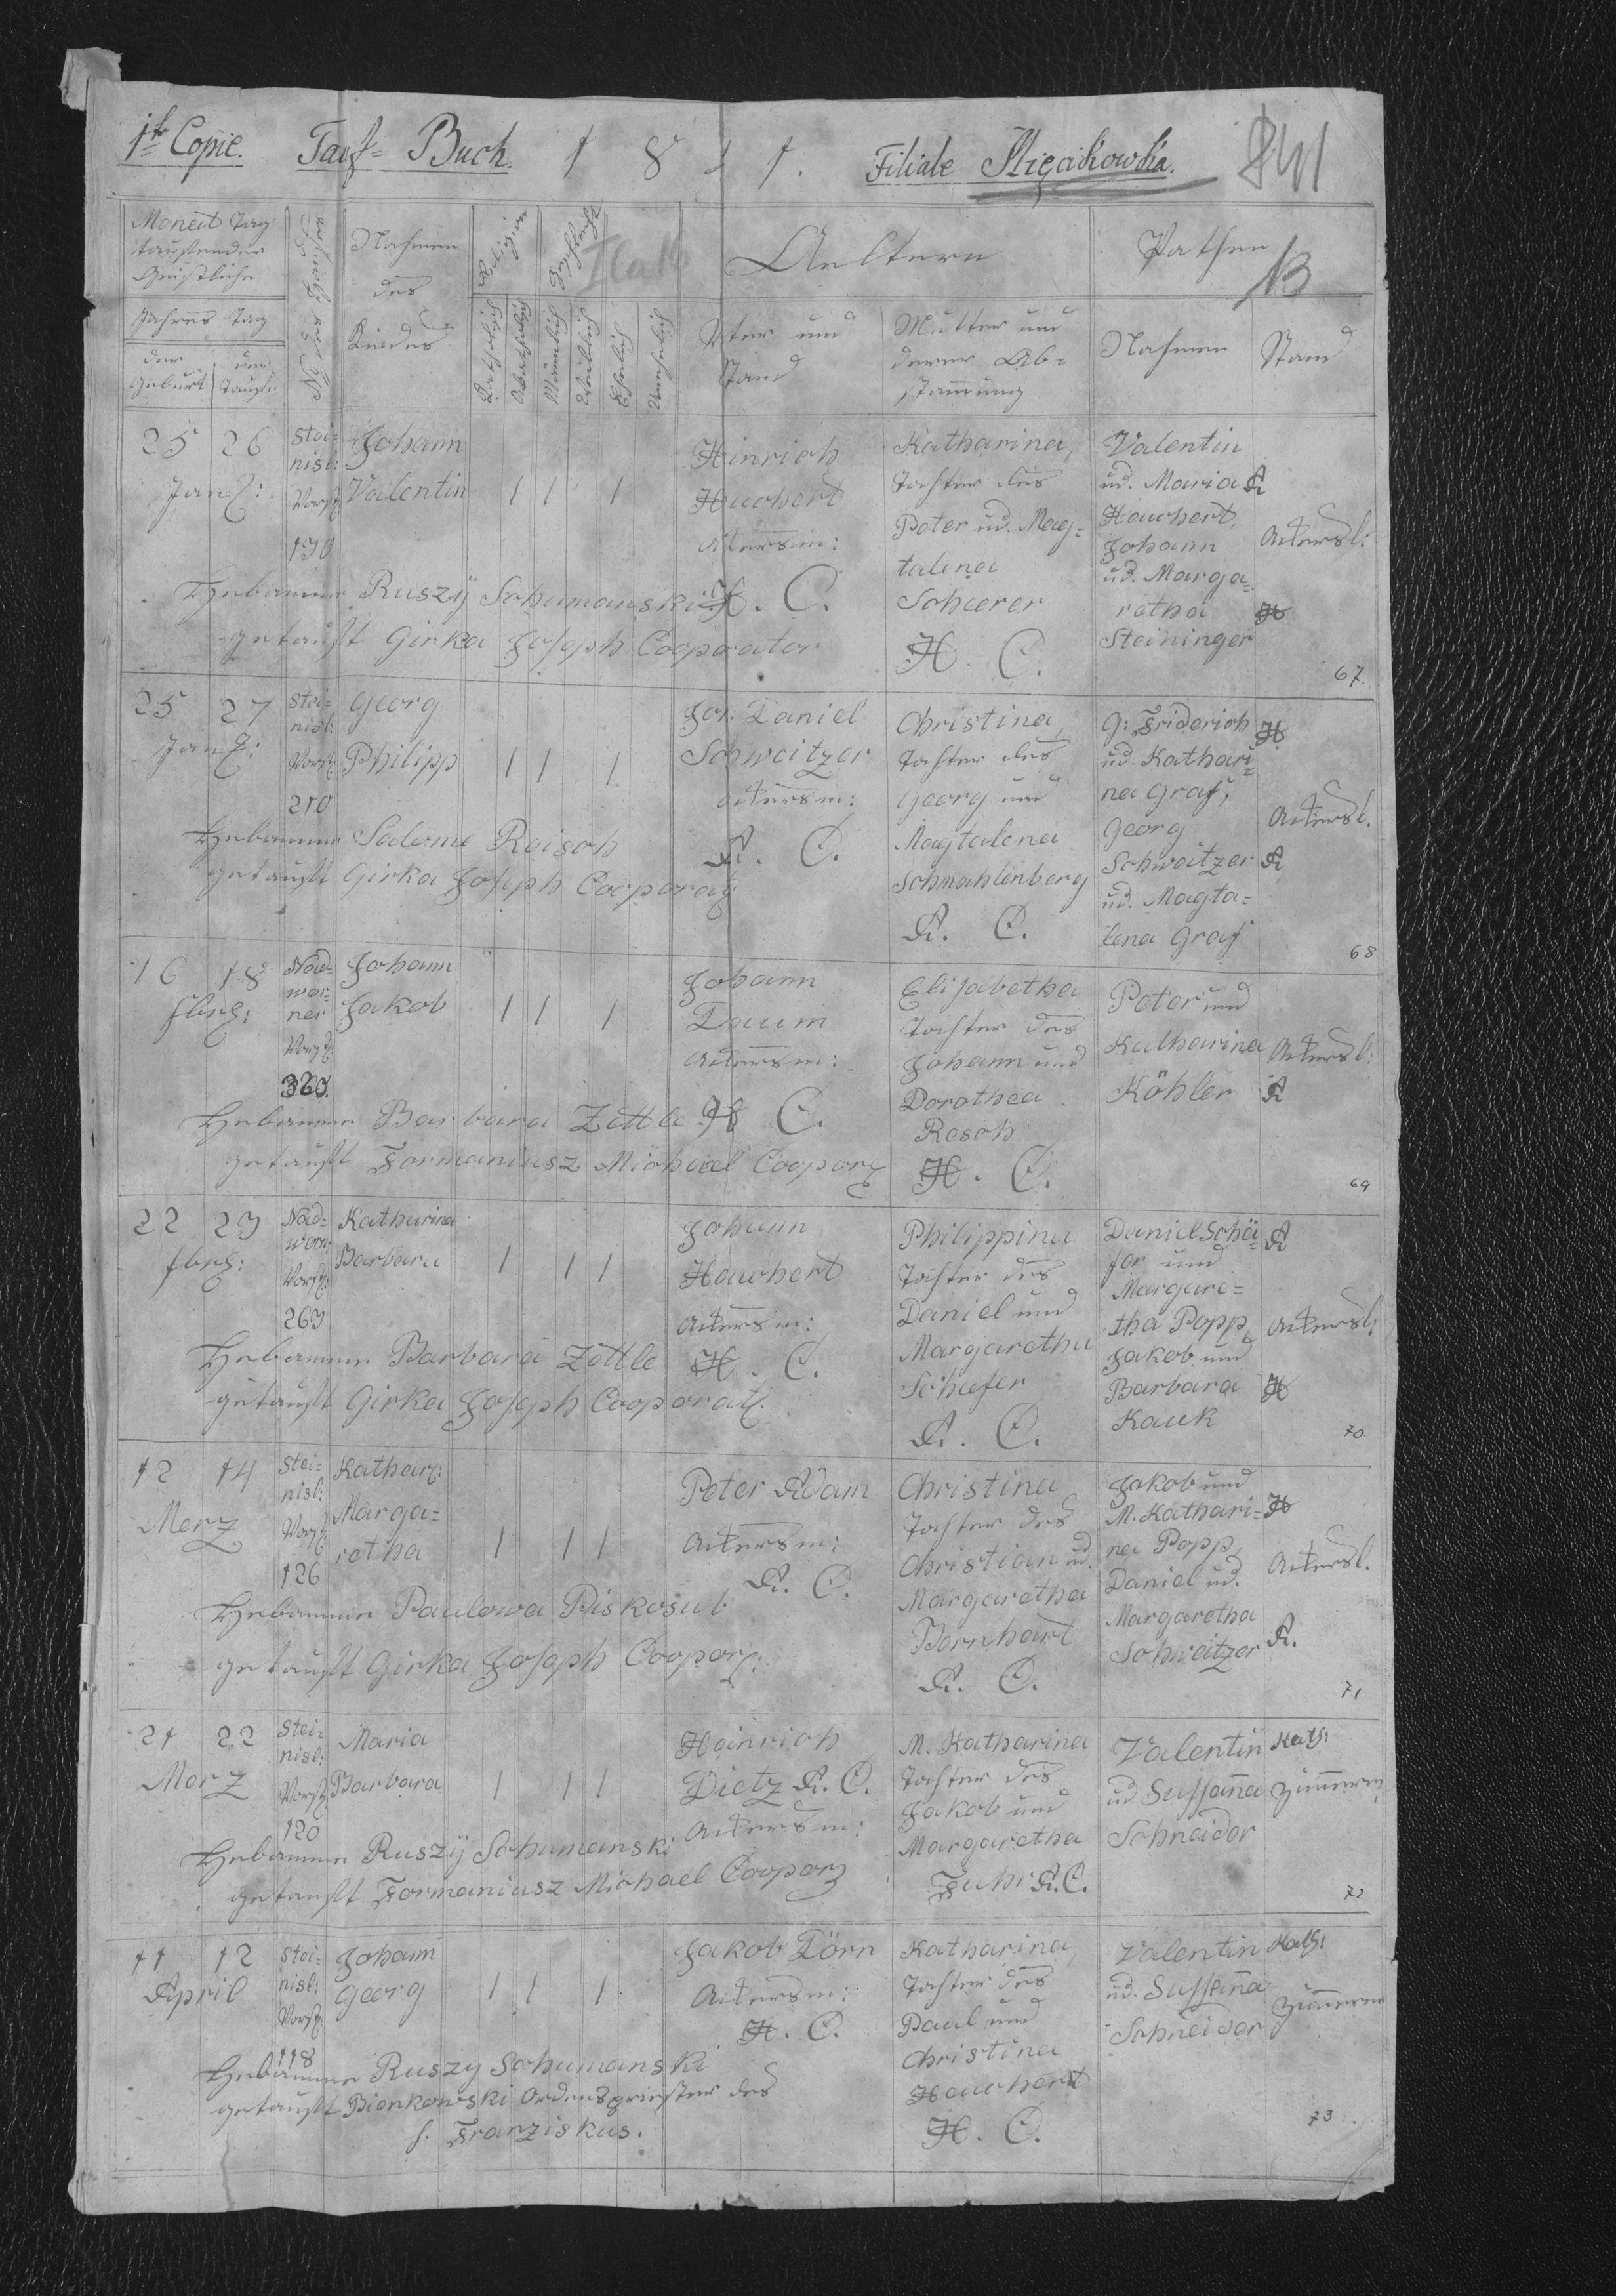 1te Copie. Tauf= Buch. 1 8 4 1. Filiale Slięcikowka. 841
Monat Tag
taufender
Geistliche
Jahres Tag
der Geburt
der Taufe
No des Hauses
Nahmen
des
Kindes
Religion
Geschlecht
Katholisch
Akatholisch
Männlich
Weiblich
Ehelich
Unehelich
Aeltern
Pathen
13
Vater und
Stand
Mutter und
derer Ab=
stammung
Nahmen
Stand
25 26
Jan:
Stei=
nisl:
Vorst
190
Johann
Valentin
1 1 1
Hinrich
Hauchert
Akersm:
H. C.
Katharina,
Tochter des
Peter ud. Mag=
talena
Scherer
H. C.
Valentin
ud. Maria A
Hauchert,
Johann
ud. Marga=
retha H
Steininger
Akersl:
Hebamme Ruszÿ Schumanski
getauft Girka Joseph Cooperator
67
25 27
Jan:
Stei=
nisl:
Vorst
210
Georg
Philipp
1 1 1
Joh. Daniel
Schweitzer
Akersm:
A. C.
Christina,
Tochter des
Georg und
Magtalena
Schmahlenberg
A. C.
G: Friderich H
ud. Kathari=
na Graf,
Georg
Schweitzer A
ud. Magta=
lena Graf
Akersl.
Hebamme Salome Reisch
getauft Girka Joseph Cooperat
68
16 18
Febr:
Nad=
wor=
ner
Vorst
360.
Johann
Jakob
1 1 1
Johann
Daum
Akersm:
H C.
Elisabetha
Tochter des
Johann und
Dorothea
Resch
H. C.
Peter und
Katharina
Köhler A
Akersl:
Hebamme Barbara Zettle
getauft Formaniusz Michael Cooper
69
22 23
Febr:
Nad=
worn:
Vorst
263
Katharina
Barbara
1 1 1
Johann
Hauchert
Akersm:
H. C.
Philippina
Tochter des
Daniel und
Margaretha
Schefer
A. C.
Daniel Schä= A
fer und
Margare=
tha Popp,
Jakob und
Barbara H
Kauk
Akersl:
Hebamme Barbara Zettle
getauft Girka Joseph Cooperat.
70
12 14
Merz
Stei=
nisl:
Vorst
126
Kathar:
Marga=
retha
1 1 1
Peter Adam
Akersm:
A. C.
Christina
Tochter des
Christian ud.
Margaretha
Bernhart
A. C.
Jakob und
M. Kathari= H
na Popp,
Daniel ud.
Margaretha
Schweitzer A.
Akersl.
Hebamme Paulowa Piskosub
getauft Girka Joseph Cooper:
71
21 22
Merz
Stei=
nisl:
Vorst
120
Maria
Barbara
1 1 1
Heinrich
Dietz A. C.
Akersm:
M. Katharina
Tochter des
Jakob und
Margaretha
Fuhr A. C.
Valentin
ud Sussanna
Schneider
Kath:
Zimmerm
Hebamme Ruszÿ Schumanski
getauft Formaniusz Michael Cooper
72
11 12
April
Stei=
nisl:
Vorst
118
Johann
Georg
1 1 1
Jakob Dörn
Akersm:
H. C.
Katharina,
Tochter des
Paul und
Christina
Hauchert
H. C.
Valentin
ud. Sussanna
Schneider
Kath:
Zimmerm
Hebamme Ruszy Schumanski
getauft Bienkowski Ordenspriester des
s. Franziskus.
73